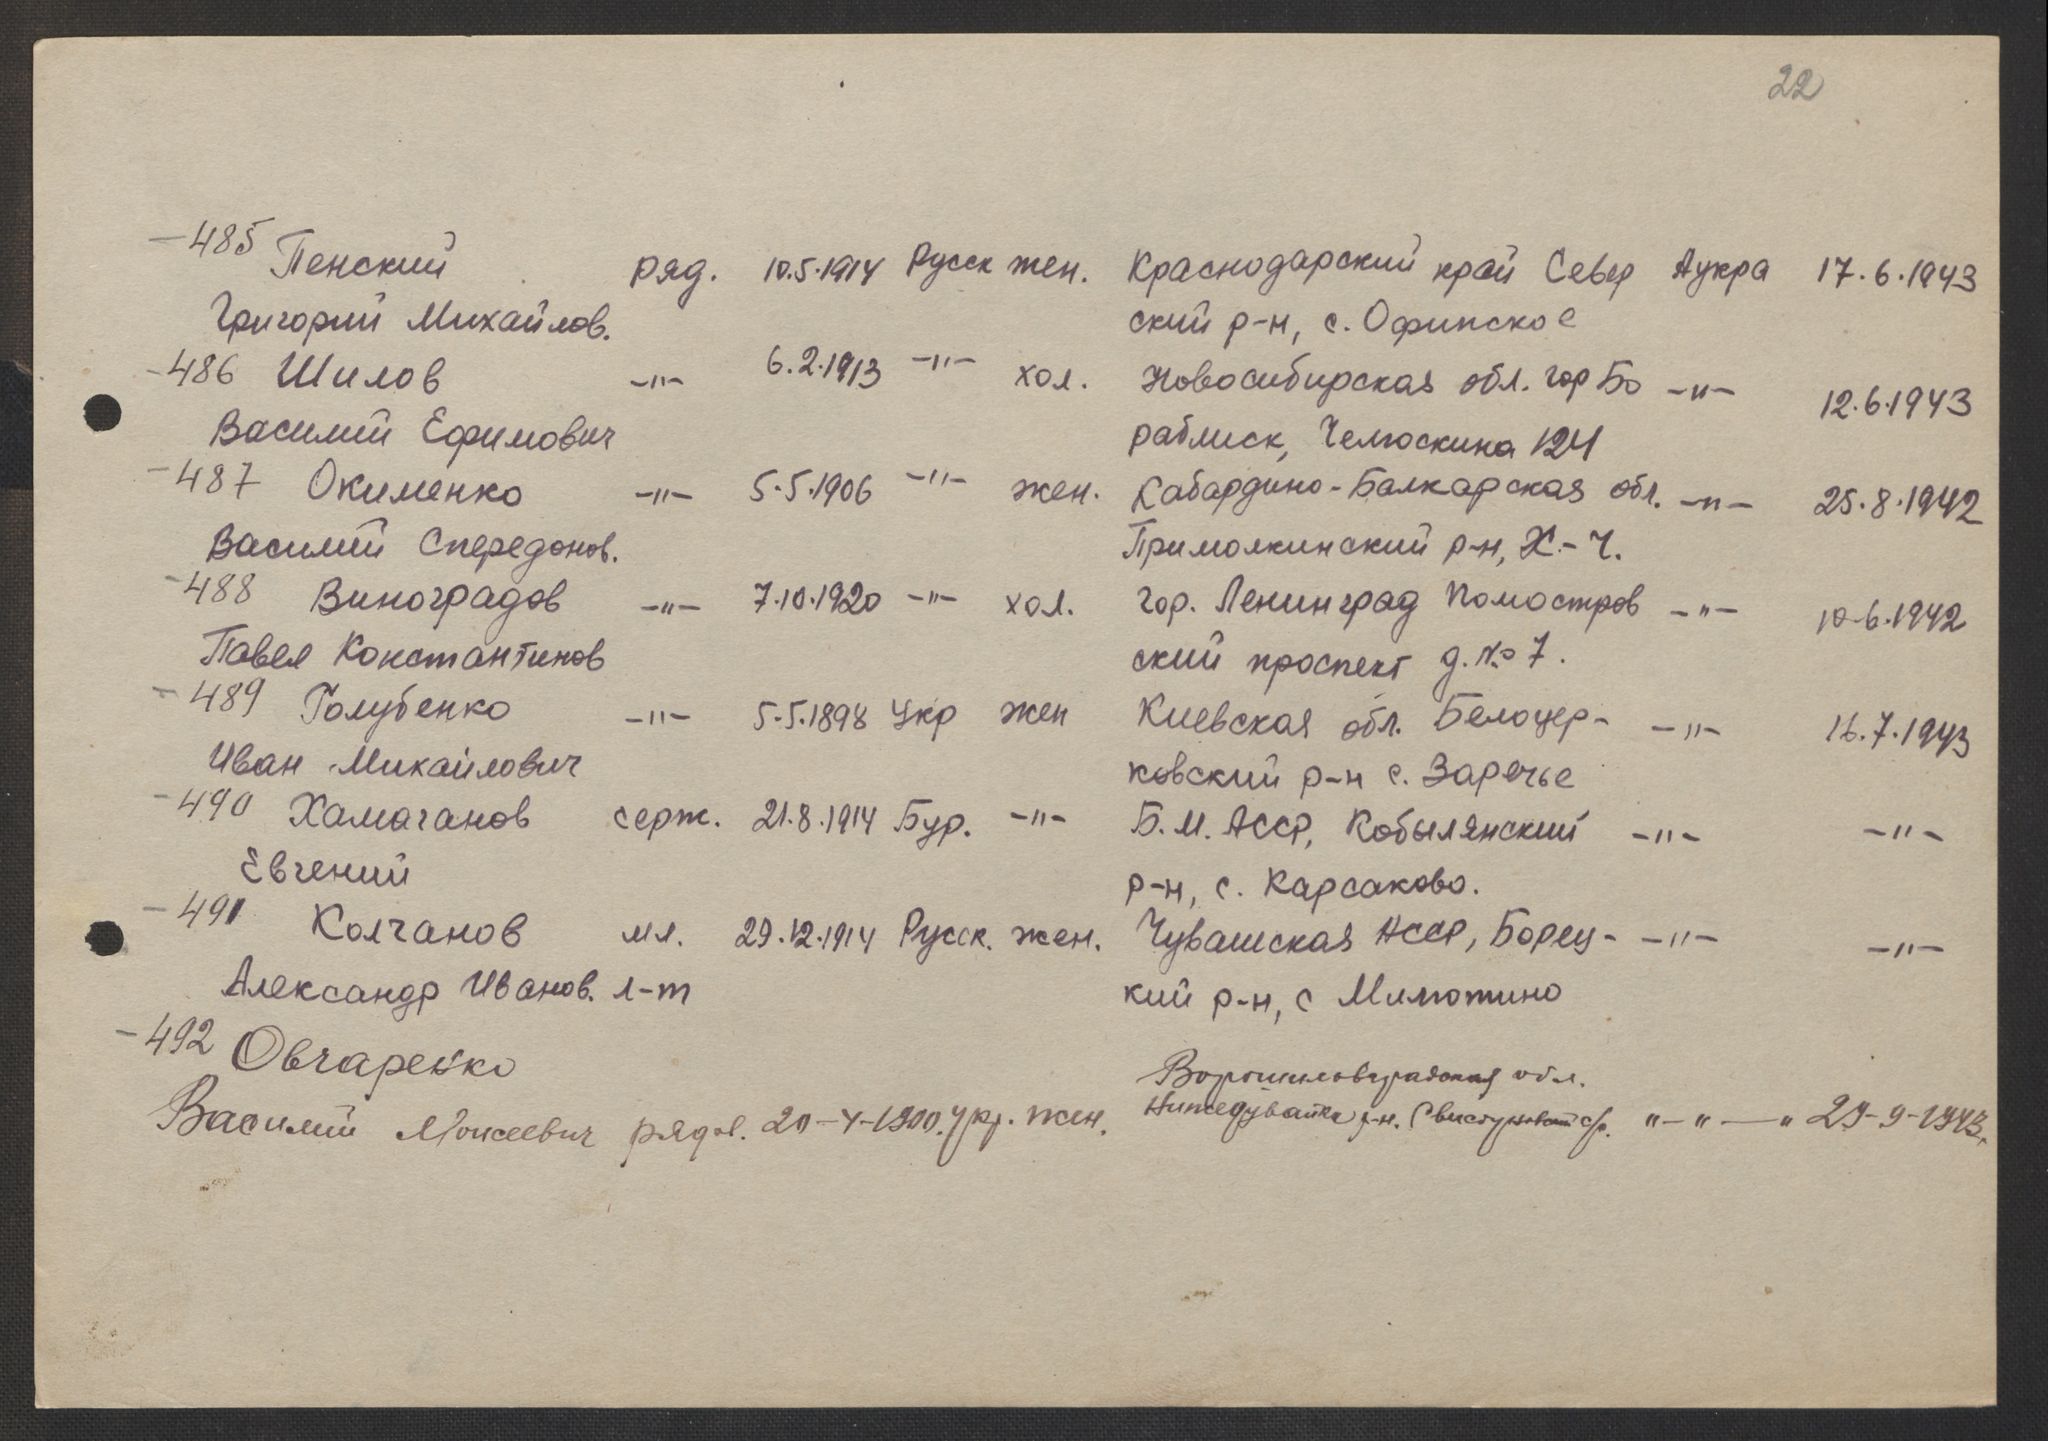 22
-485 Пенский ряд. 10.5.1914 Русск жен. Краснодарский край Север Аукра 17.6.1943
Григорий Михайлов. ский р-н, с. Офипское
-486 Шилов -"- 6.2.1913 -"- хол. Новосибирская обл. гор Бо -"- 12.6.1943
Василий Ефимович раблиск, Челюскина 124
-487 Окименко -"- 5.5.1906 -"- жен. Кабардино-Балкарская обл. -"- 25.8.1942
Василий Спередонов. Прималкинский р-н, Х.-Ч.
-488 Виноградов -"- 7.10.1920 -"- хол. гор. Ленинград Помостров -"- 10.6.1942
Павел Константинов ский проспект д. № 7.
-489 Голубенко -"- 5.5.1898 Укр жен Киевская обл. Белоцер- -"- 16.7.1943
Иван Михайлович ковский р-н с. Заречье
-490 Хамаганов серж. 21.8.1914 Бур. -"- Б.М. АССР, Кобылянский -"- -"-
Евгений р-н, с. Карсаково.
-491 Колчанов мл. 29.12.1914 Русск. жен. Чувашская АССР, Борец- -"- -"-
Александр Иванов. л-т кий р-н, с Милютино
-492 Овчаренко Ворошиловградская обл.
Василий Моисеевич рядов. 20-4-1900. укр. жен. р-н. "-"-" 29-9-1943.